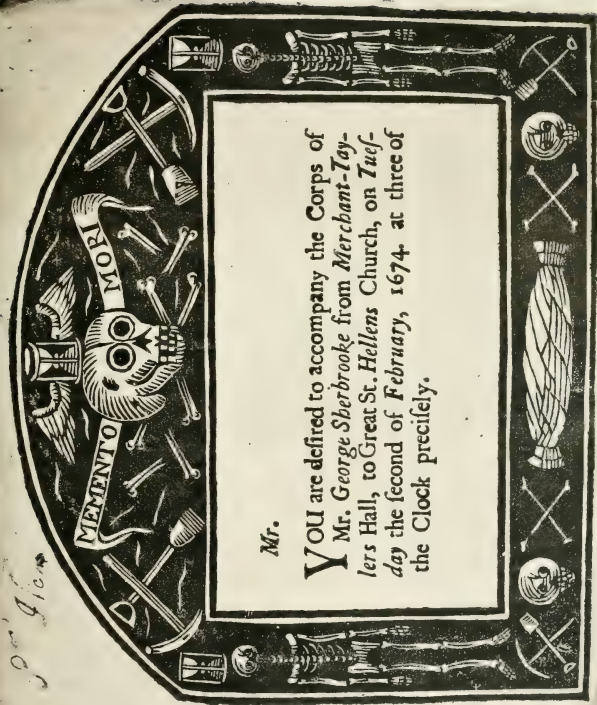 MEMENTO MORI
Mr.
YOU are deſired to accompany the Corps of
Mr. George Sherbrooke from Merchant-Tay-
lers Hall, to Great St. Hellens Church, on Tueſ-
day the ſecond of February, 1674. at three of
the Clock preciſely.